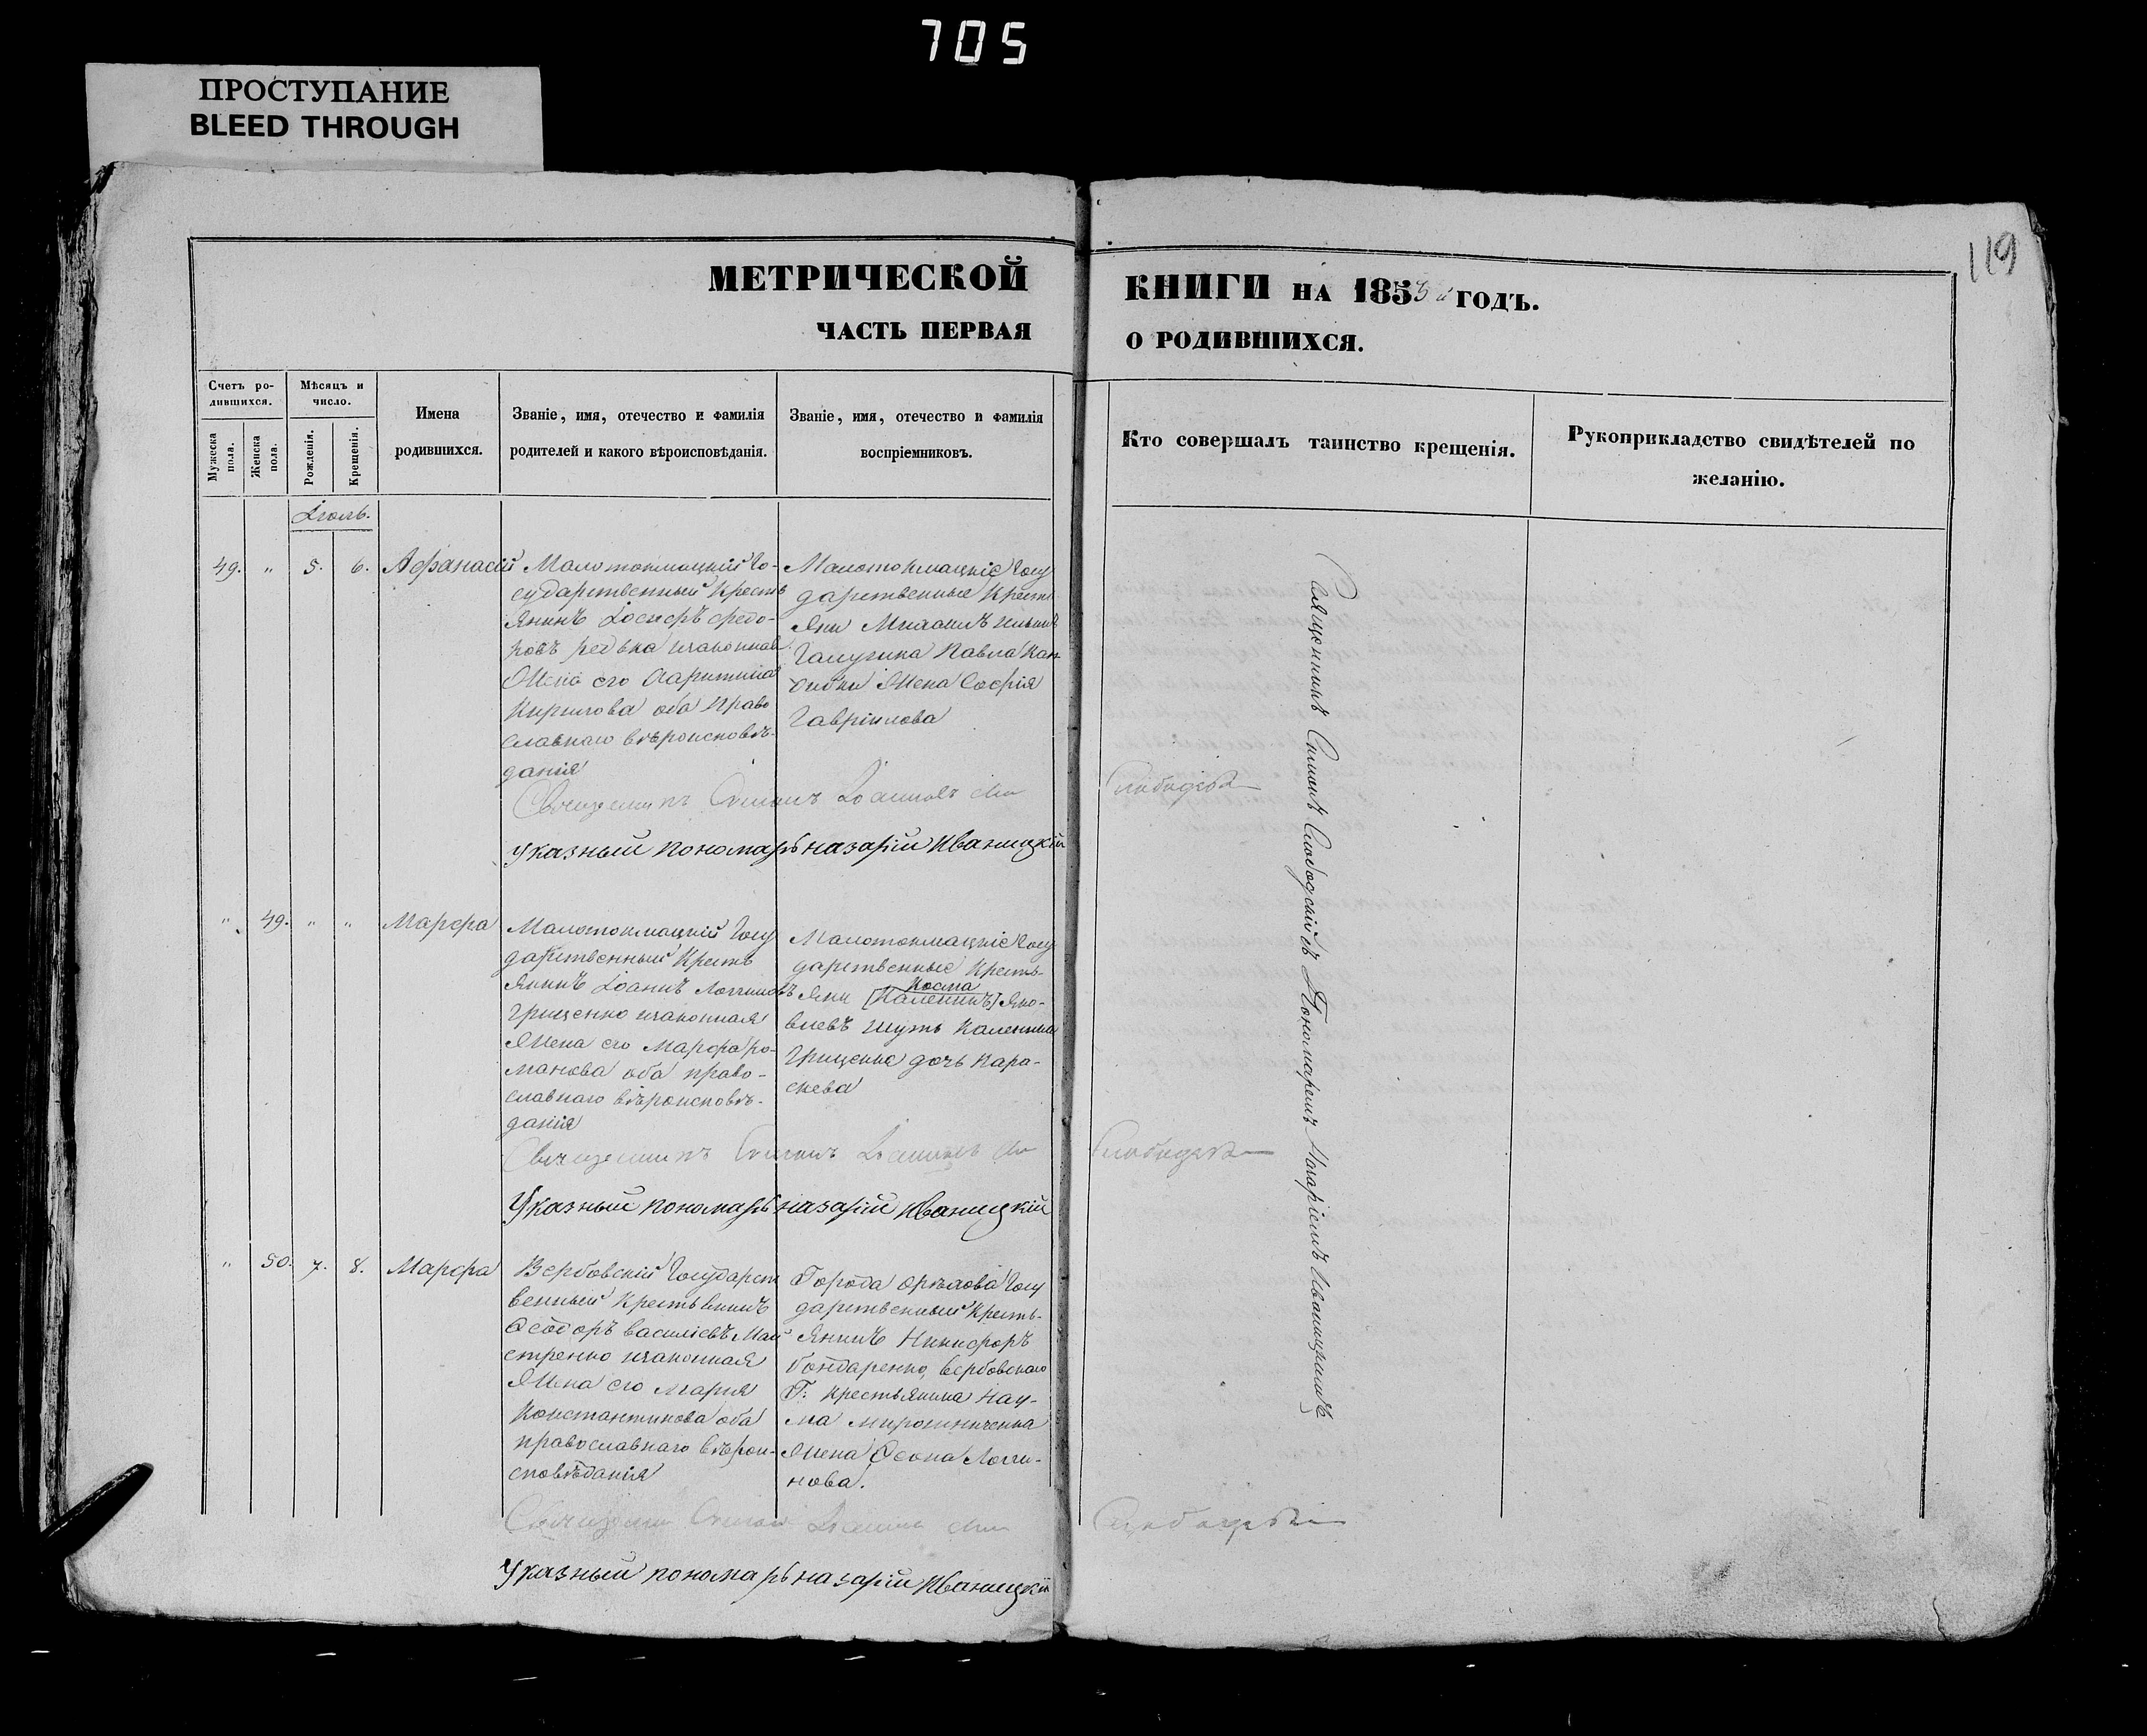 705
ПРОСТУПАНИЕ
BLEED THROUGH
119
МЕТРИЧЕСКОЙ
ЧАСТЬ ПЕРВАЯ
КНИГИ НА 1853й ГОДЪ.
О РОДИВШИХСЯ.
Счетъ ро-
дившихся.
Мужеска пола.
Женска пола.
Мѣсяцъ и
число.
Рожденія.
Крещенія.
Имена
родившихся.
Званіе, имя, отечество и фамилія
родителей и какого вѣроисповѣданія.
Званіе, имя, отечество и фамилія
воспріемниковъ.
Кто совершалъ таинство крещенія.
Рукоприкладство свидѣтелей по
желанію.
Іюль.
49. " 5. 6. Афанасій
Малотокмацкій Го-
сударственный Кресть
янинъ Іосифъ Федо-
ровъ Редька законная
Жена его
Кирилова оба Право
славнаго вѣроисповѣ-
данія
Малотокмацкіе Госу
дарственные Кресть
яни Михаилъ Ильинъ
Галушка Павла
Жена Софія
Гавріилова
Священникъ Симонъ Іоанновъ
Слободскій
Указный пономарь Назарій Иваницкій
" 49. " " Марфа
Малотокмацкій Госу
дарственный Кресть
янинъ Іоаннъ Логиновъ
Грищенко законная
Жена его Марфа Ро-
манова оба право-
славнаго вѣроисповѣ-
данія
Малотокмацкіе Госу
дарственные Кресть-
Косма
яни [Каленикъ] Яко-
влевъ Шуть Каленика
Грищенка дочь Пара-
скева
Священникъ Симонъ Іоанновъ
Слободскій
Указный пономарь Назарій Иваницкій
" 50. 7. 8. Марфа
Вербовскій Государст
венный Крестьянинъ
Ѳеодоръ Василіевъ Май
стренко законная
Жена его Марія
Константинова оба
православнаго вѣрои-
сповѣданія
Города Орѣхова Госу
дарственный Кресть-
янинъ Никифоръ
Бондаренко, Вербовскаго
Г. Крестьянина Нау-
ма Мирошниченка
Жена Ѳеона Логи-
нова.
Священникъ Симонъ Іоанновъ
Слободскій
Указный пономарь Назарій Иваницкій
Священникъ Симонъ Слободскій съ Пономаремъ Назаріемъ Иваницкимъ